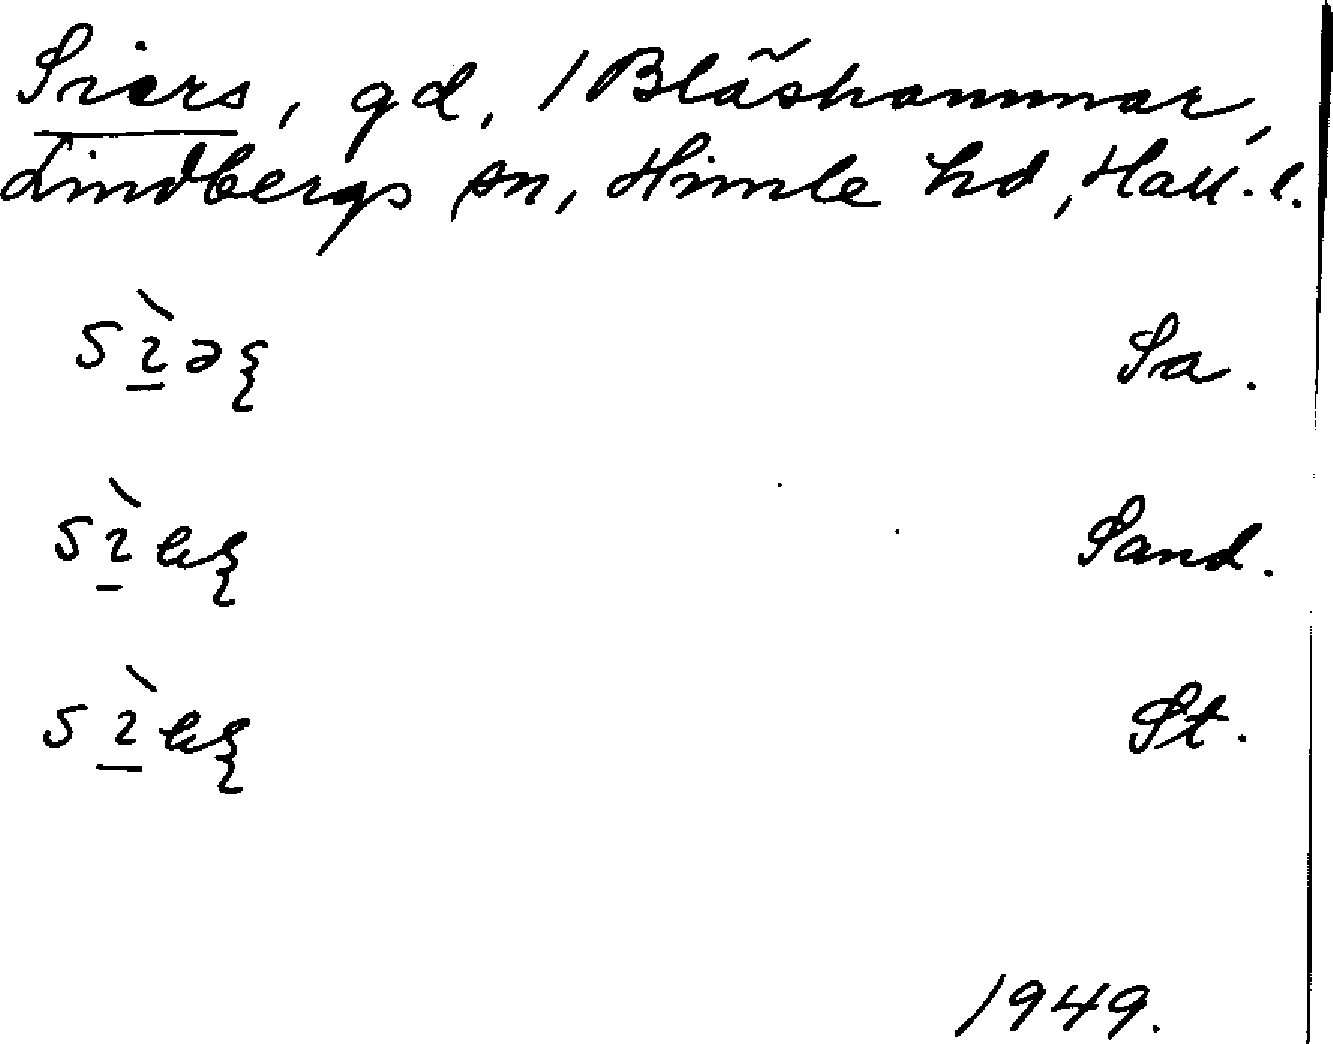 Siers, gd, 1 Blåshammar,
Lindbergs sn, Himle hd, Hall. l.
Sa.
Sand.
St.
1949.